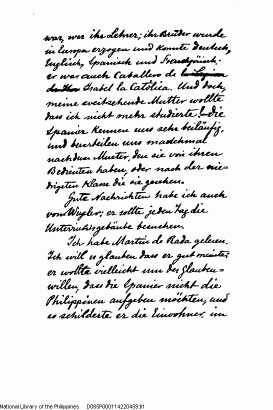 war, war ihr Lehrer; ihr Bruder wurde
in Europa erzogen und konnte Deutsch,
Englisch, Spanisch und Französisch.
er war auch Caballero de
Isabel la Católica. Und doch,
meine weitsehende Mutter wollte
dass ich nicht mehr studierte! die
Spanier kennen uns sehr beiläufig
und beurteilen uns manchmal
nach dem Muster, den sie von ihren
Bedienten haben, oder nach der nie-
drigsten Klasse die sie gesehen.
Gute Nachrichten habe ich auch
vom Weyler; er sollte jeden Tag die
Unterrichtsgebäude besuchen.
Ich habe Martin de Rada gelesen.
Ich will es glauben dass er gut meinte;
er wollte vielleicht um des Glauben-
willen, dass die Spanier nicht die
Philippinen aufgeben möchten, und
so schilderte er die Einwohner, im
National Library of the Philippines